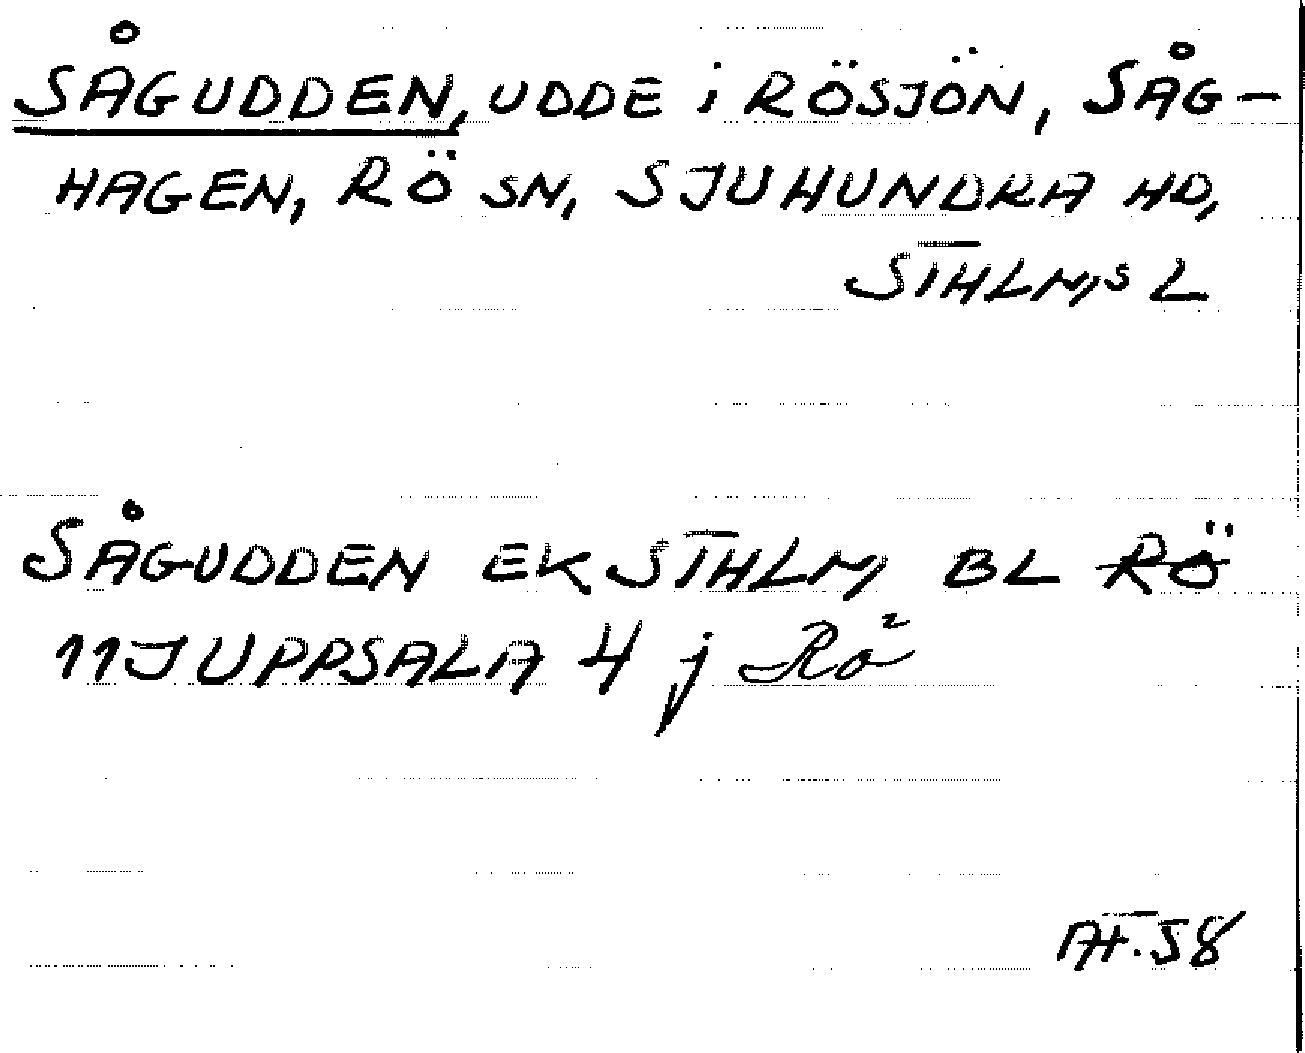 SÅGUDDEN, UDDE i RÖSJÖN, SÅG-
HAGEN, RÖ SN, SJUHUNDRA HD,
STHLM,S L
SÅGUDDEN EK STHLM, BL ~~RÖ~~
11J UPPSALA 4 j Rö
58